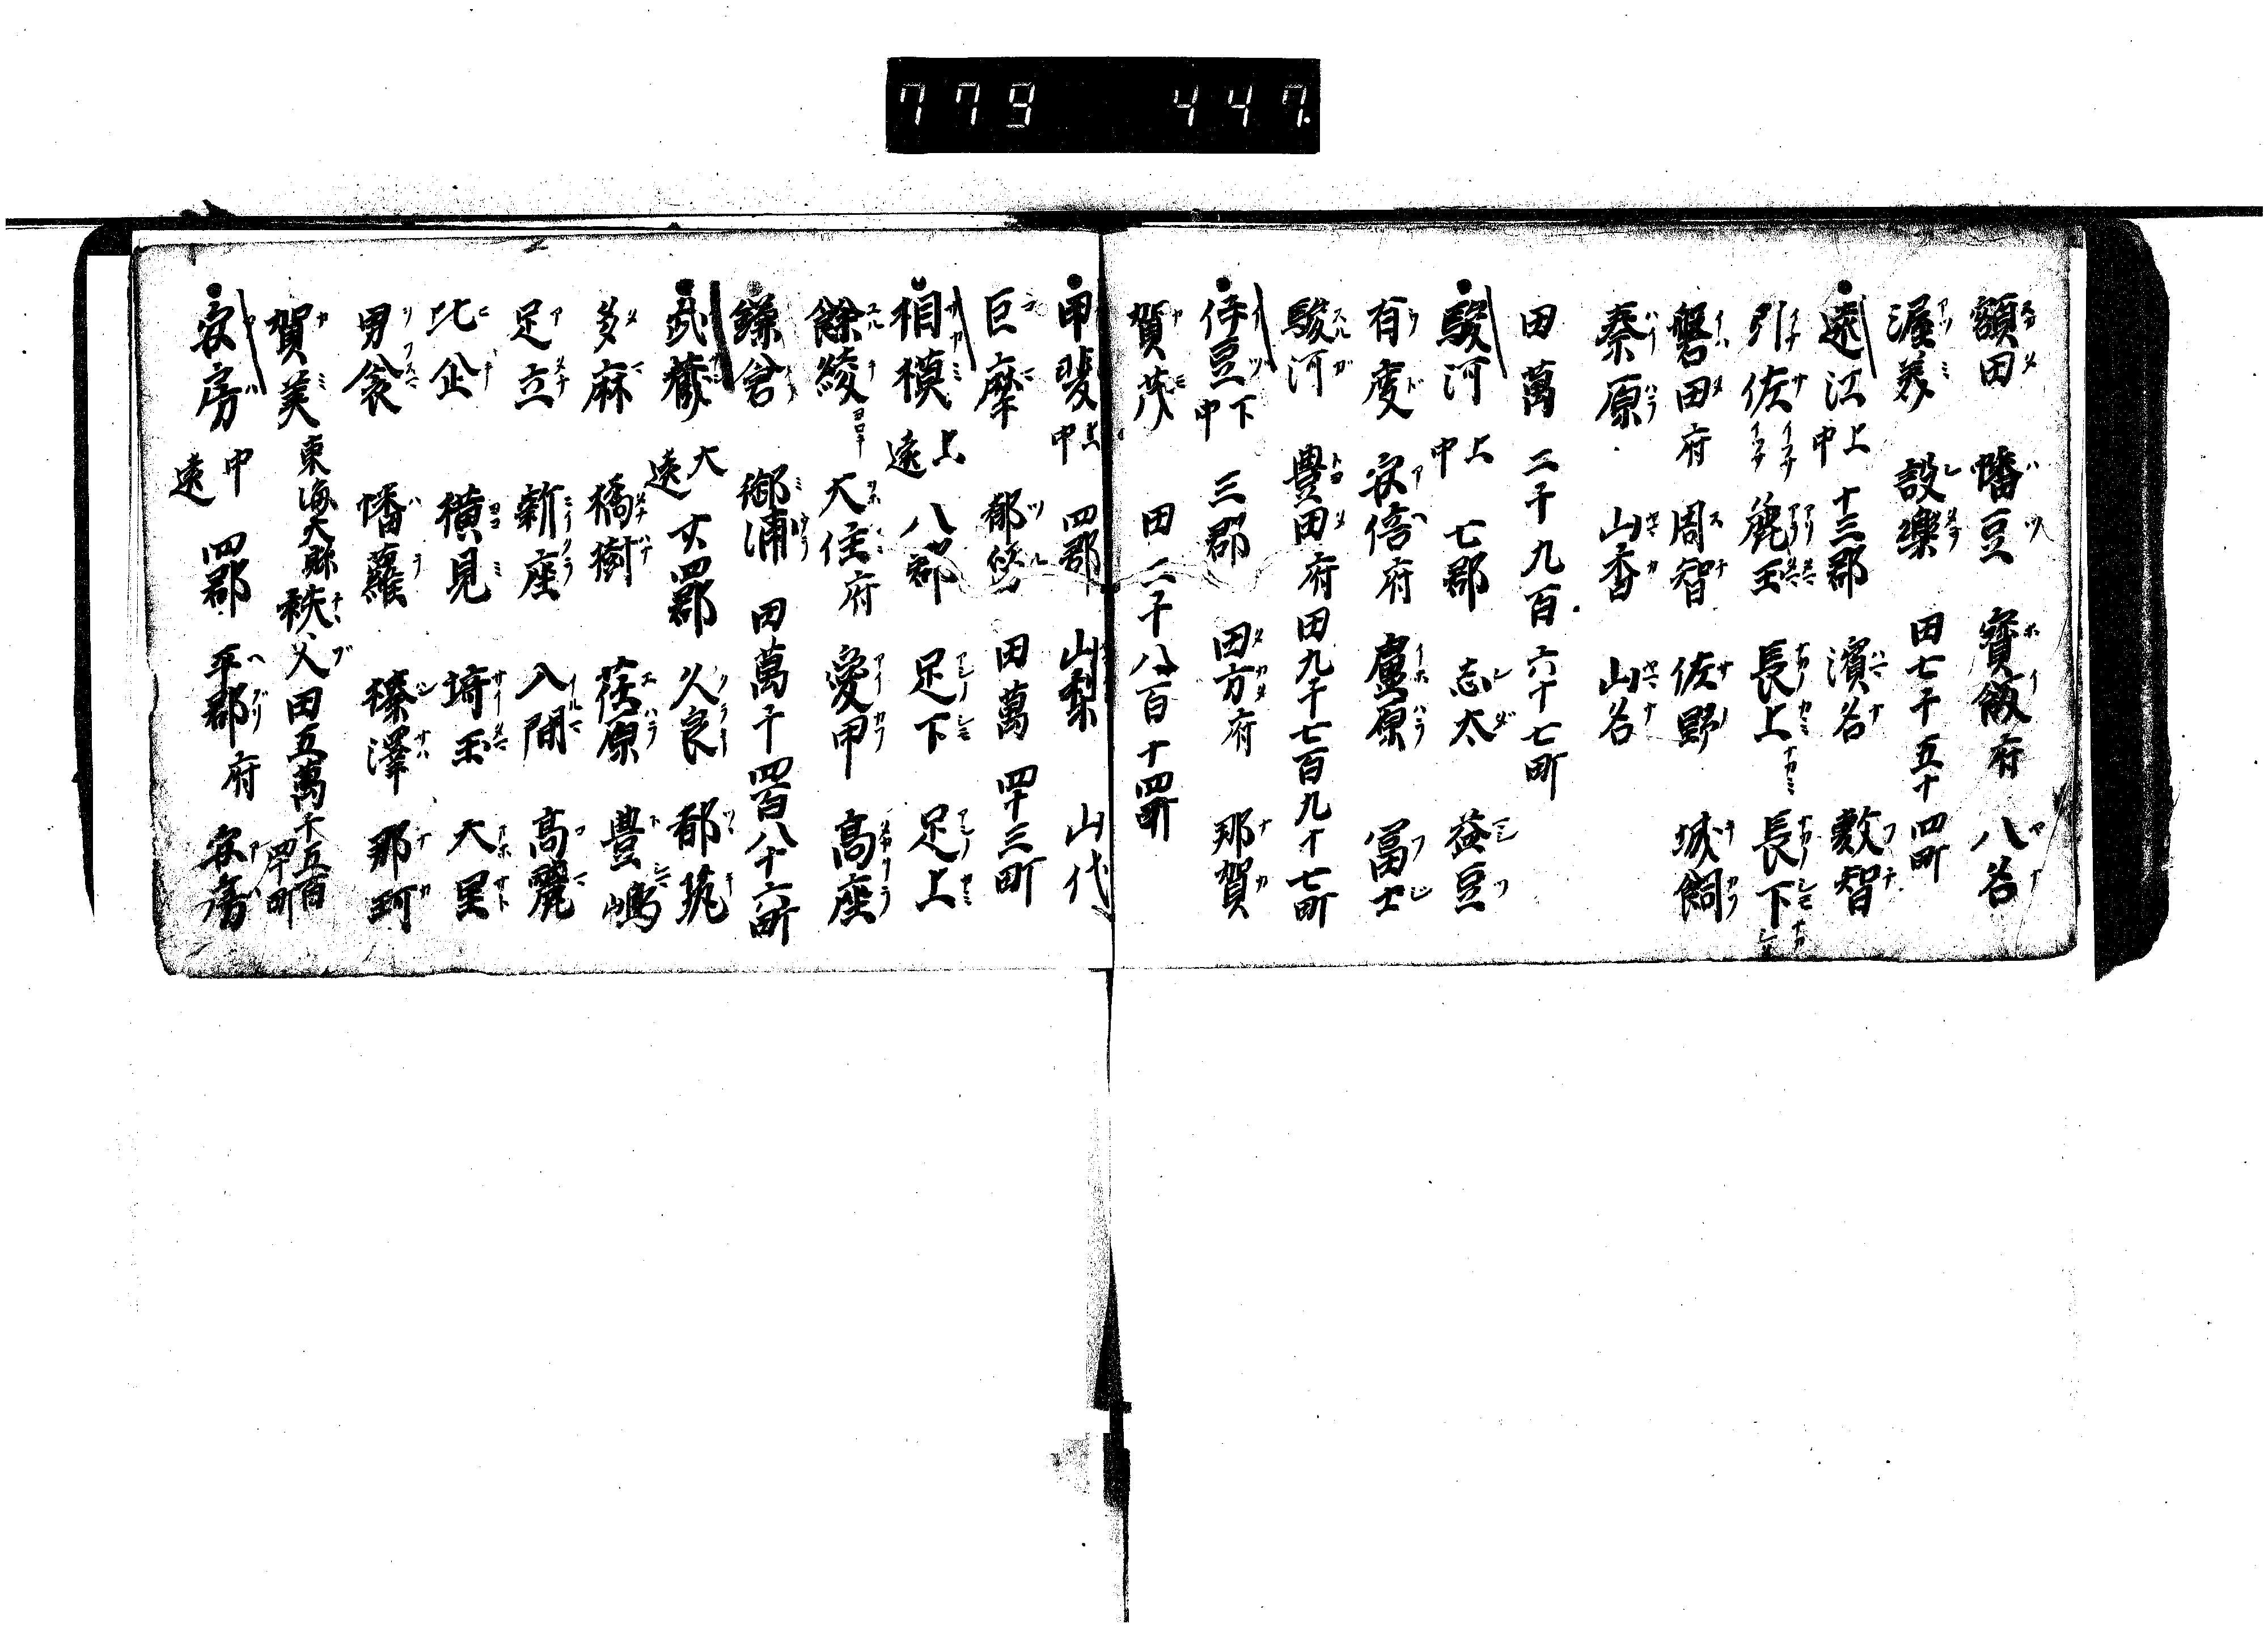 779 447.
額田 幡豆 寳飯府 八名
渥美 設樂 田七千五十四町
遠江上中 十三郡 濱名 敷智
引佐 麁玉 長上 長下
磐田府 周智 佐野 城飼
秦原 山香 山名
田萬二千九百六十七町
駿河上中 七郡 志太 益豆
有度 安倍府 廬原 冨士
駿河 豊田府 田九千七百九十七町
伊豆下中 三郡 田方府 那賀
賀茂 田二千八百十四町
甲斐上中 四郡 山梨 山代
巨摩 都留 田萬四十三町
相模上遠 八郡 足下 足上
餘綾 大住府 愛甲 高座
鎌倉 御浦 田萬千四百八十六町
武藏大遠 廿四郡 久良 都筑
多麻 橘樹 荏原 豊嶋
足立 新座 入間 高麗
比企 横見 埼玉 大里
男衾 幡蘿 榛澤 那珂
賀美 東海大縣 秩父 田五萬千五百四十町
安房中遠 四郡 平郡府 安房